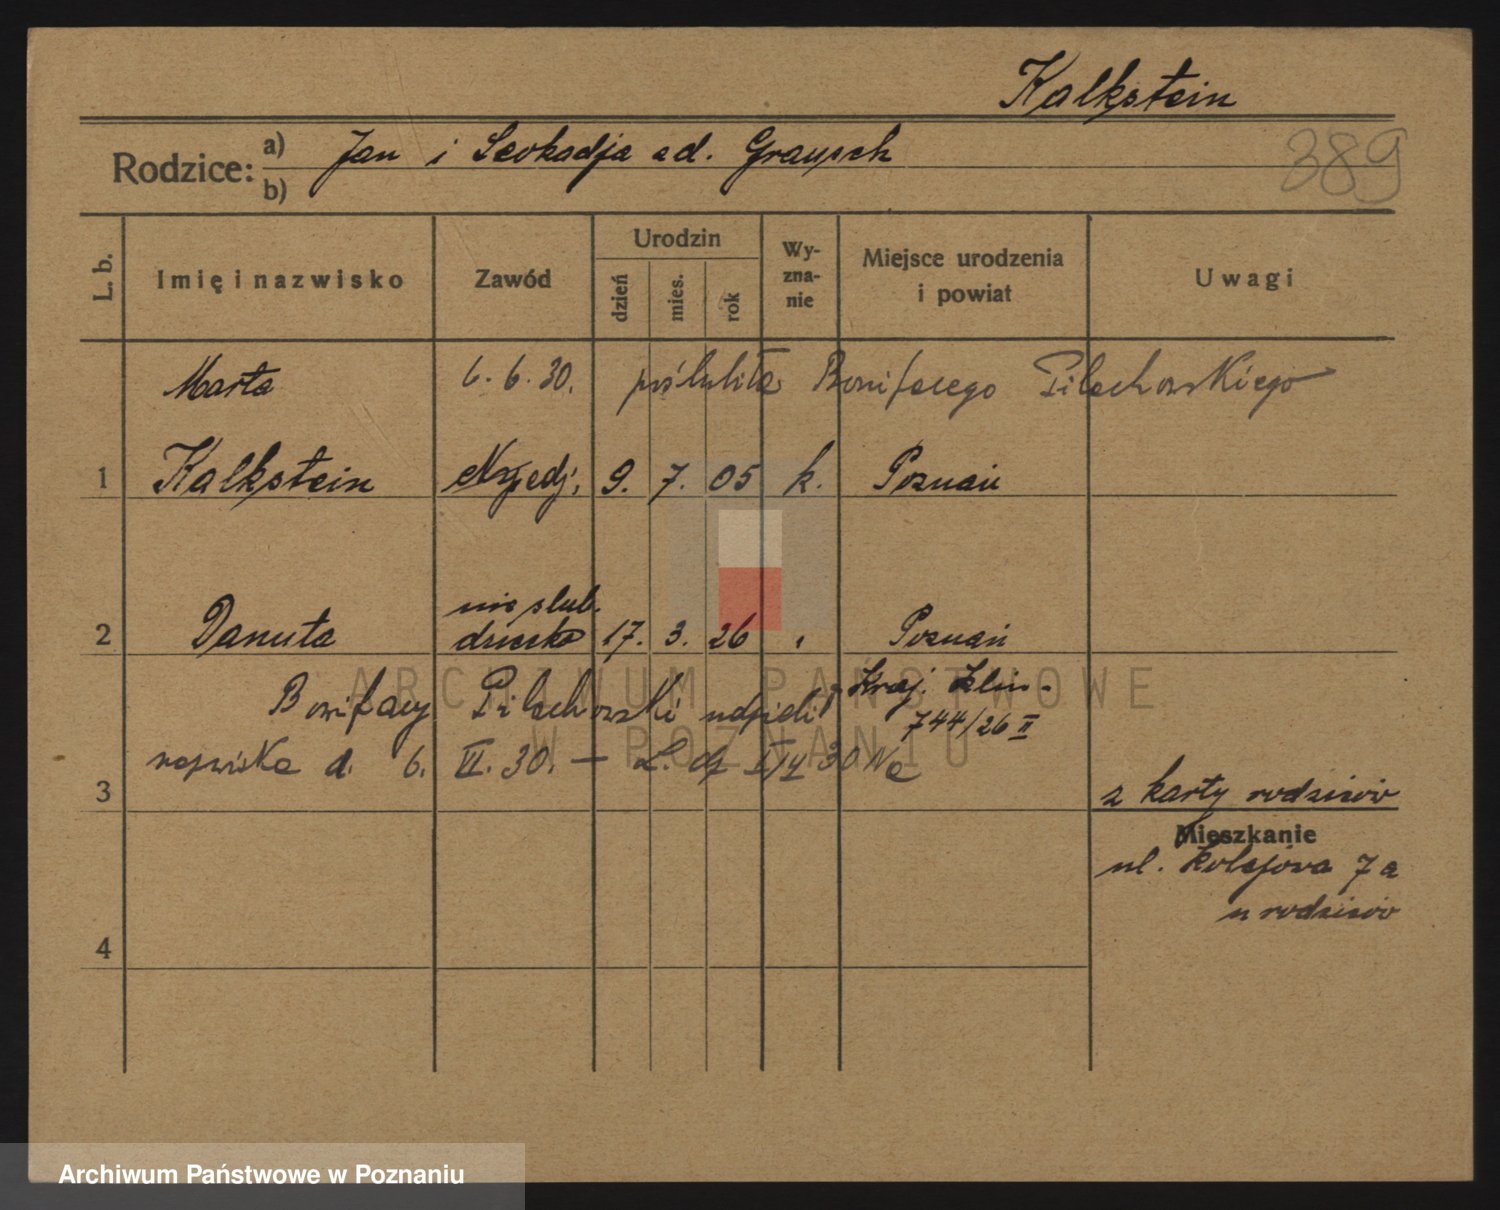 Kalkstein
389
Rodzice: a) Jan i Leokadja zd. Grausch
b)
L. b. Imię i nazwisko Zawód Urodzin dzień mies. rok Wy-zna-nie Miejsce urodzenia i powiat Uwagi
Marta 6. 6. 30. poślubiła Bonifacego Pilachowskiego
1 Kalkstein 9. 7. 05 k. Poznań
nieślub.
2 Danuta dziecko 17. 3. 26 Poznań
Bonifacy Pilachowski udzielił Kraj.
744/26 II
nazwiska d. 6. VI. 30. — L. dz
3 z karty rodziców
Mieszkanie
ul. Kolejowa 7a
u rodziców
4
ARCHIWUM PAŃSTWOWE
W POZNANIU
Archiwum Państwowe w Poznaniu